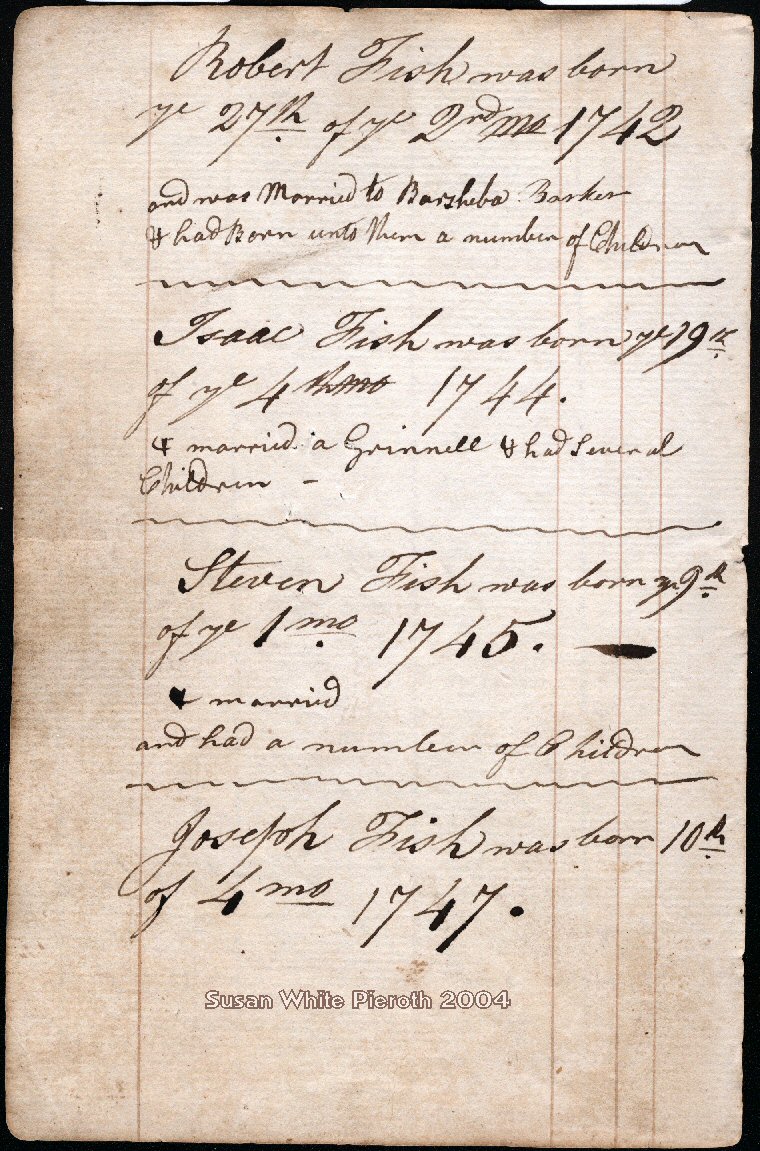 Robert Fish was born
ye 27th of ye 2rd mo 1742
and was Married to Barsheba Barker
& had Born unto them a number of Children
Isaac Fish was born ye 19th
of ye 4th mo 1744.
& married a Grinnell & had Several
Children -
Steven Fish was born ye 9th
of ye 1 mo 1745. —
& married
and had a number of Children
Joseph Fish was born 10th
of 4 mo 1747.
Susan White Pieroth 2004